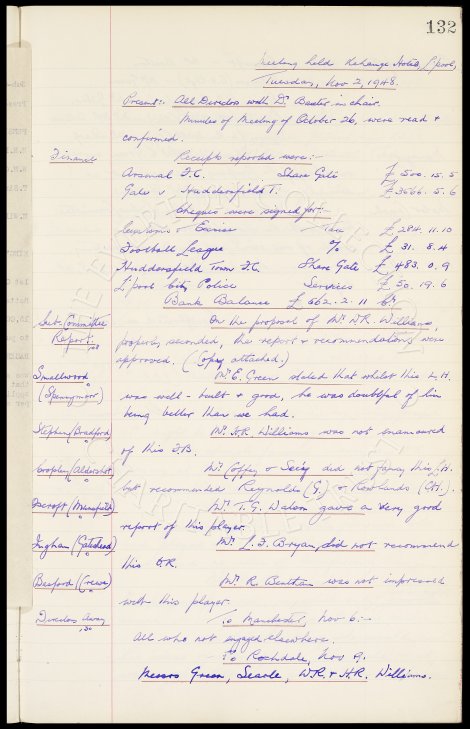 132
Meeting held Exchange Hotel, L'pool,
Tuesday, Nov 2, 1948.
Present:- All Directors with Dr. Baxter in chair.
Minutes of Meeting of October 26, were read &
confirmed.
Finance Receipts reported were:-
Arsenal F.C. Share Gate £ 500. 15. 5
Gate v Huddersfield T. £ 3666. 5. 6
Cheques were signed for:-
Customs & Excise Tax £ 284. 11. 10
Football League % £ 31. 8. 4
Huddersfield Town F.C. Share Gate £ 483. 0. 9
L'pool City Police Services £ 50. 19. 6
Bank Balance £ 662. 2. 11 Cr.
Sub-Committee On the proposal of Mr. W.R. Williams,
Report. properly seconded, the report & recommendations were
approved. (Copy attached.)
Smallwood Mr. E. Green stated that whilst this L.H.
(Spennymoor) was well-built & good, he was doubtful of him
being better than we had.
Stephen (Bradford) Mr. H.R. Williams was not enamoured
of this F.B.
Cropley (Aldershot) Mr. Coffey & Seiey did not fancy this I.H.
but recommended Reynolds (G.) & Rowlands (CH.).
Oscroft (Mansfield) Mr. T.G. Watson gave a very good
report of this player.
Ingham (Gateshead) Mr. L.F. Bryan, did not recommend
this O.R.
Basford (Crewe) Mr. R. Bentham was not impressed
with this player.
Directors Away To Manchester, Nov 6:-
All who not engaged elsewhere.
To Rochdale, Nov 9.
Messrs Green, Searle, W.R. & H.R. Williams.